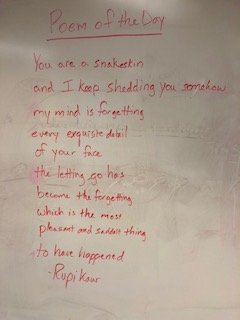 Poem of the Day
You are a snakeskin
and I keep shedding you somehow
my mind is forgetting
every exquisite detail
of your face
the letting go has
become the forgetting
which is the most
pleasant and saddest thing
to have happened
-Rupi Kaur